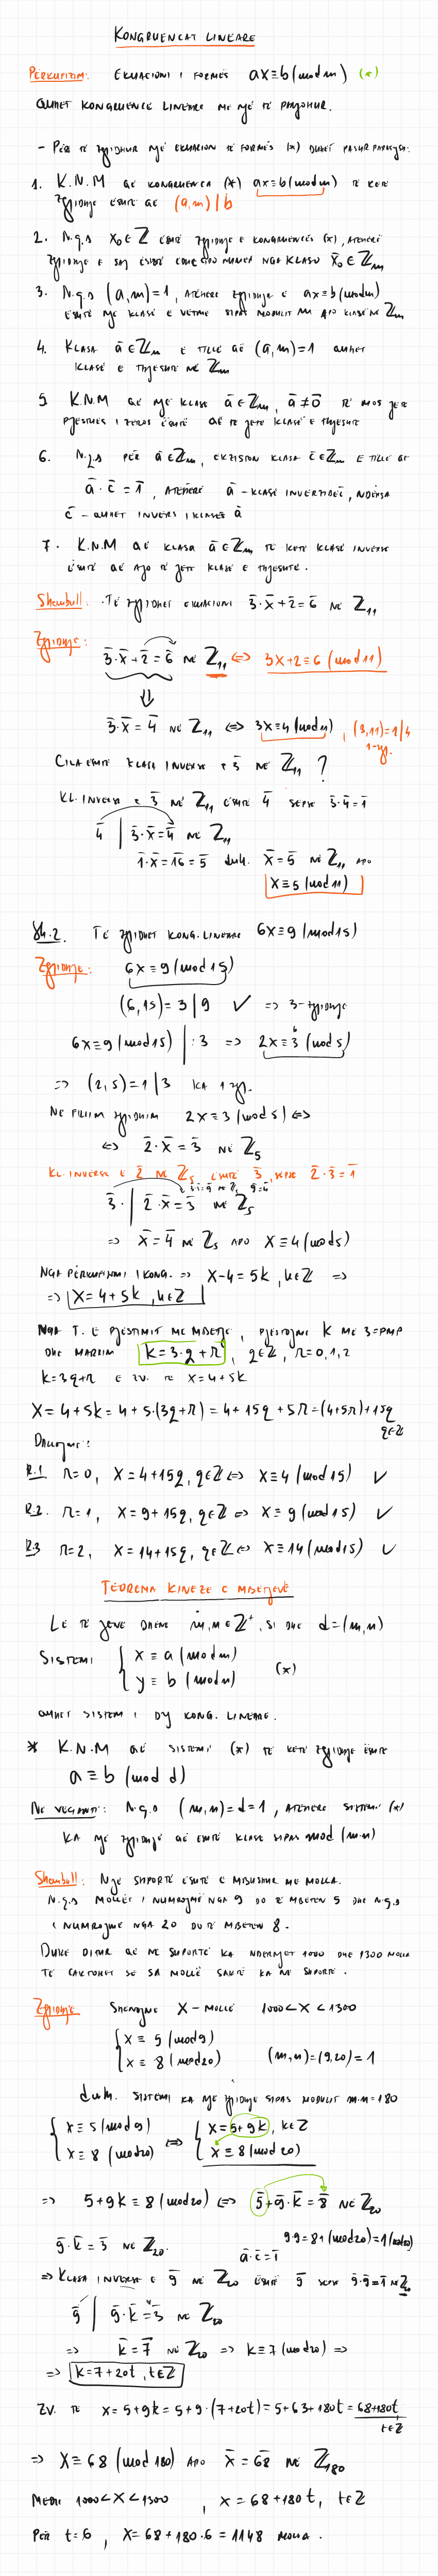 KONGRUENCAT LINEARE
PËRKUFIZIM: EKUACIONI I FORMËS ax≡b(mod m) (*)
QUHET KONGRUENCË LINEARE ME NJË TË PANJOHUR.
- PËR TË ZGJIDHUR NJË EKUACION TË FORMËS (*) DUHET PASUR PARASYSH:
1. K.N.M QË KONGRUENCA (*) ax≡b(mod m) TË KETË
ZGJIDHJE ËSHTË QË (a,m)|b
2. N.q.s x₀∈ℤ ËSHTË ZGJIDHJE E KONGRUENCËS (*), ATËHERË
ZGJIDHJE E SAJ ËSHTË EDHE ÇDO NUMËR NGA KLASA x̄₀∈ℤm
3. N.q.s (a,m)=1, ATËHERË ZGJIDHJE E ax≡b(mod m)
ËSHTË NJË KLASË E VETME SIPAS MODULIT m APO KLASË NË ℤm
4. KLASA ā∈ℤm E TILLË QË (a,m)=1 QUHET
KLASË E THJESHTË NË ℤm
5. K.N.M QË NJË KLASË ā∈ℤm, ā≠0̄ TË MOS JETË
PJESTUES I ZEROS ËSHTË QË TË JETË KLASË E THJESHTË
6. N.q.s PËR ā∈ℤm, EKZISTON KLASA c̄∈ℤm E TILLË QË
ā·c̄=1̄, ATËHERË ā-KLASË INVERZIBËL, NDËRSA
c̄-QUHET INVERS I KLASËS ā
7. K.N.M QË KLASA ā∈ℤm TË KETË KLASË INVERSE
ËSHTË QË AJO TË JETË KLASË E THJESHTË.
Shembull: TË ZGJIDHET EKUACIONI 3̄·x̄+2̄=6̄ NË ℤ₁₁
Zgjidhje: 3̄·x̄+2̄=6̄ NË ℤ₁₁ ⇔ 3x+2≡6(mod 11)
⇓
3̄·x̄=4̄ NË ℤ₁₁ ⇔ 3x≡4(mod 11), (3,11)=1/4
1-zgj.
CILA ËSHTË KLASA INVERSE E 3̄ NË ℤ₁₁ ?
KL. INVERSE E 3̄ NË ℤ₁₁ ËSHTË 4̄ SEPSE 3̄·4̄=1̄
4̄ | 3̄·x̄=4̄ NË ℤ₁₁
1̄·x̄=16=5̄ d.m.th. x̄=5̄ NË ℤ₁₁ APO
x≡5(mod 11)
Sh.2. TË ZGJIDHET KONG. LINEARE 6x≡9(mod 15)
Zgjidhje: 6x≡9(mod 15)
(6,15)=3|9 ✓ => 3-zgjidhje
6x≡9(mod 15) |:3 => 2x≡3(mod 5)
=> (2,5)=1|3 KA 1 zgj.
NË FILLIM ZGJIDHIM 2x≡3(mod 5) ⇔
⇔ 2̄·x̄=3̄ NË ℤ₅
KL. INVERSE E 2̄ NË ℤ₅ ËSHTË 3̄, SEPSE 2̄·3̄=1̄
3̄·3̄=9̄ NË ℤ₅ 9̄=4̄
3̄· | 2̄·x̄=3̄ NË ℤ₅
=> x̄=4̄ NË ℤ₅ APO x≡4(mod 5)
NGA PËRKUFIZIMI I KONG. => x-4=5k, k∈ℤ =>
=> x=4+5k, k∈ℤ
NGA T. E PJESTIMIT ME MBETJE, PJESTOJMË K ME 3=PMP
DHE MARRIM k=3·q+r, q∈ℤ, r=0,1,2
k=3q+r E ZV. TE x=4+5k
x=4+5k=4+5·(3q+r)=4+15q+5r=(4+5r)+15q
q∈ℤ
DALLOJMË:
R.1 r=0, x=4+15q, q∈ℤ ⇔ x≡4(mod 15) ✓
R.2 r=1, x=9+15q, q∈ℤ ⇔ x≡9(mod 15) ✓
R.3 r=2, x=14+15q, q∈ℤ ⇔ x≡14(mod 15) ✓
TEOREMA KINEZE E MBETJEVE
LE TË JENË DHËNË m,n∈ℤ⁺, SI DHE d=(m,n)
SISTEMI { x≡a(mod m)
y≡b(mod n) (*)
QUHET SISTEM I DY KONG. LINEARE.
* K.N.M QË SISTEMI (*) TË KETË ZGJIDHJE ËSHTË
a≡b(mod d)
NË VEÇANTI: N.q.s (m,n)=d=1, ATËHERË SISTEMI (*)
KA NJË ZGJIDHJE QË ËSHTË KLASË SIPAS mod(m·n)
Shembull: NJË SHPORTË ËSHTË E MBUSHUR ME MOLLA.
N.q.s MOLLËT I NUMROJMË NGA 9 DO TË MBETEN 5 DHE N.q.s
I NUMROJMË NGA 20 DO TË MBETEN 8.
DUKE DITUR QË NË SHPORTË KA NDËRMJET 1000 DHE 1300 MOLLA
TË CAKTOHET SE SA MOLLË SAKTË KA NË SHPORTË.
Zgjidhje SHENOJMË X-MOLLË 1000<X<1300
{ x≡5(mod 9)
x≡8(mod 20) (m,n)=(9,20)=1
d.m.th. SISTEMI KA NJË ZGJIDHJE SIPAS MODULIT m·n=180
{ x≡5(mod 9) ⇔ { x=5+9k, k∈ℤ
x≡8(mod 20) x≡8(mod 20)
=> 5+9k≡8(mod 20) ⇔ 5̄+9̄·k̄=8̄ NË ℤ₂₀
9̄·k̄=3̄ NË ℤ₂₀. ā·c̄=1̄ 9·9=81(mod 20)=1(mod 20)
=> KLASA INVERSE E 9̄ NË ℤ₂₀ ËSHTË 9̄ SEPSE 9̄·9̄=1̄ NË ℤ₂₀
9̄ | 9̄·k̄=3̄ NË ℤ₂₀
=> k̄=7̄ NË ℤ₂₀ => k≡7(mod 20) =>
=> k=7+20t, t∈ℤ
ZV. TE x=5+9k=5+9·(7+20t)=5+63+180t=68+180t,
t∈ℤ
=> x≡68(mod 180) APO x̄=68 NË ℤ₁₈₀
MEQË 1000<X<1300, x=68+180t, t∈ℤ
PËR t=6, x=68+180·6=1148 MOLLA.